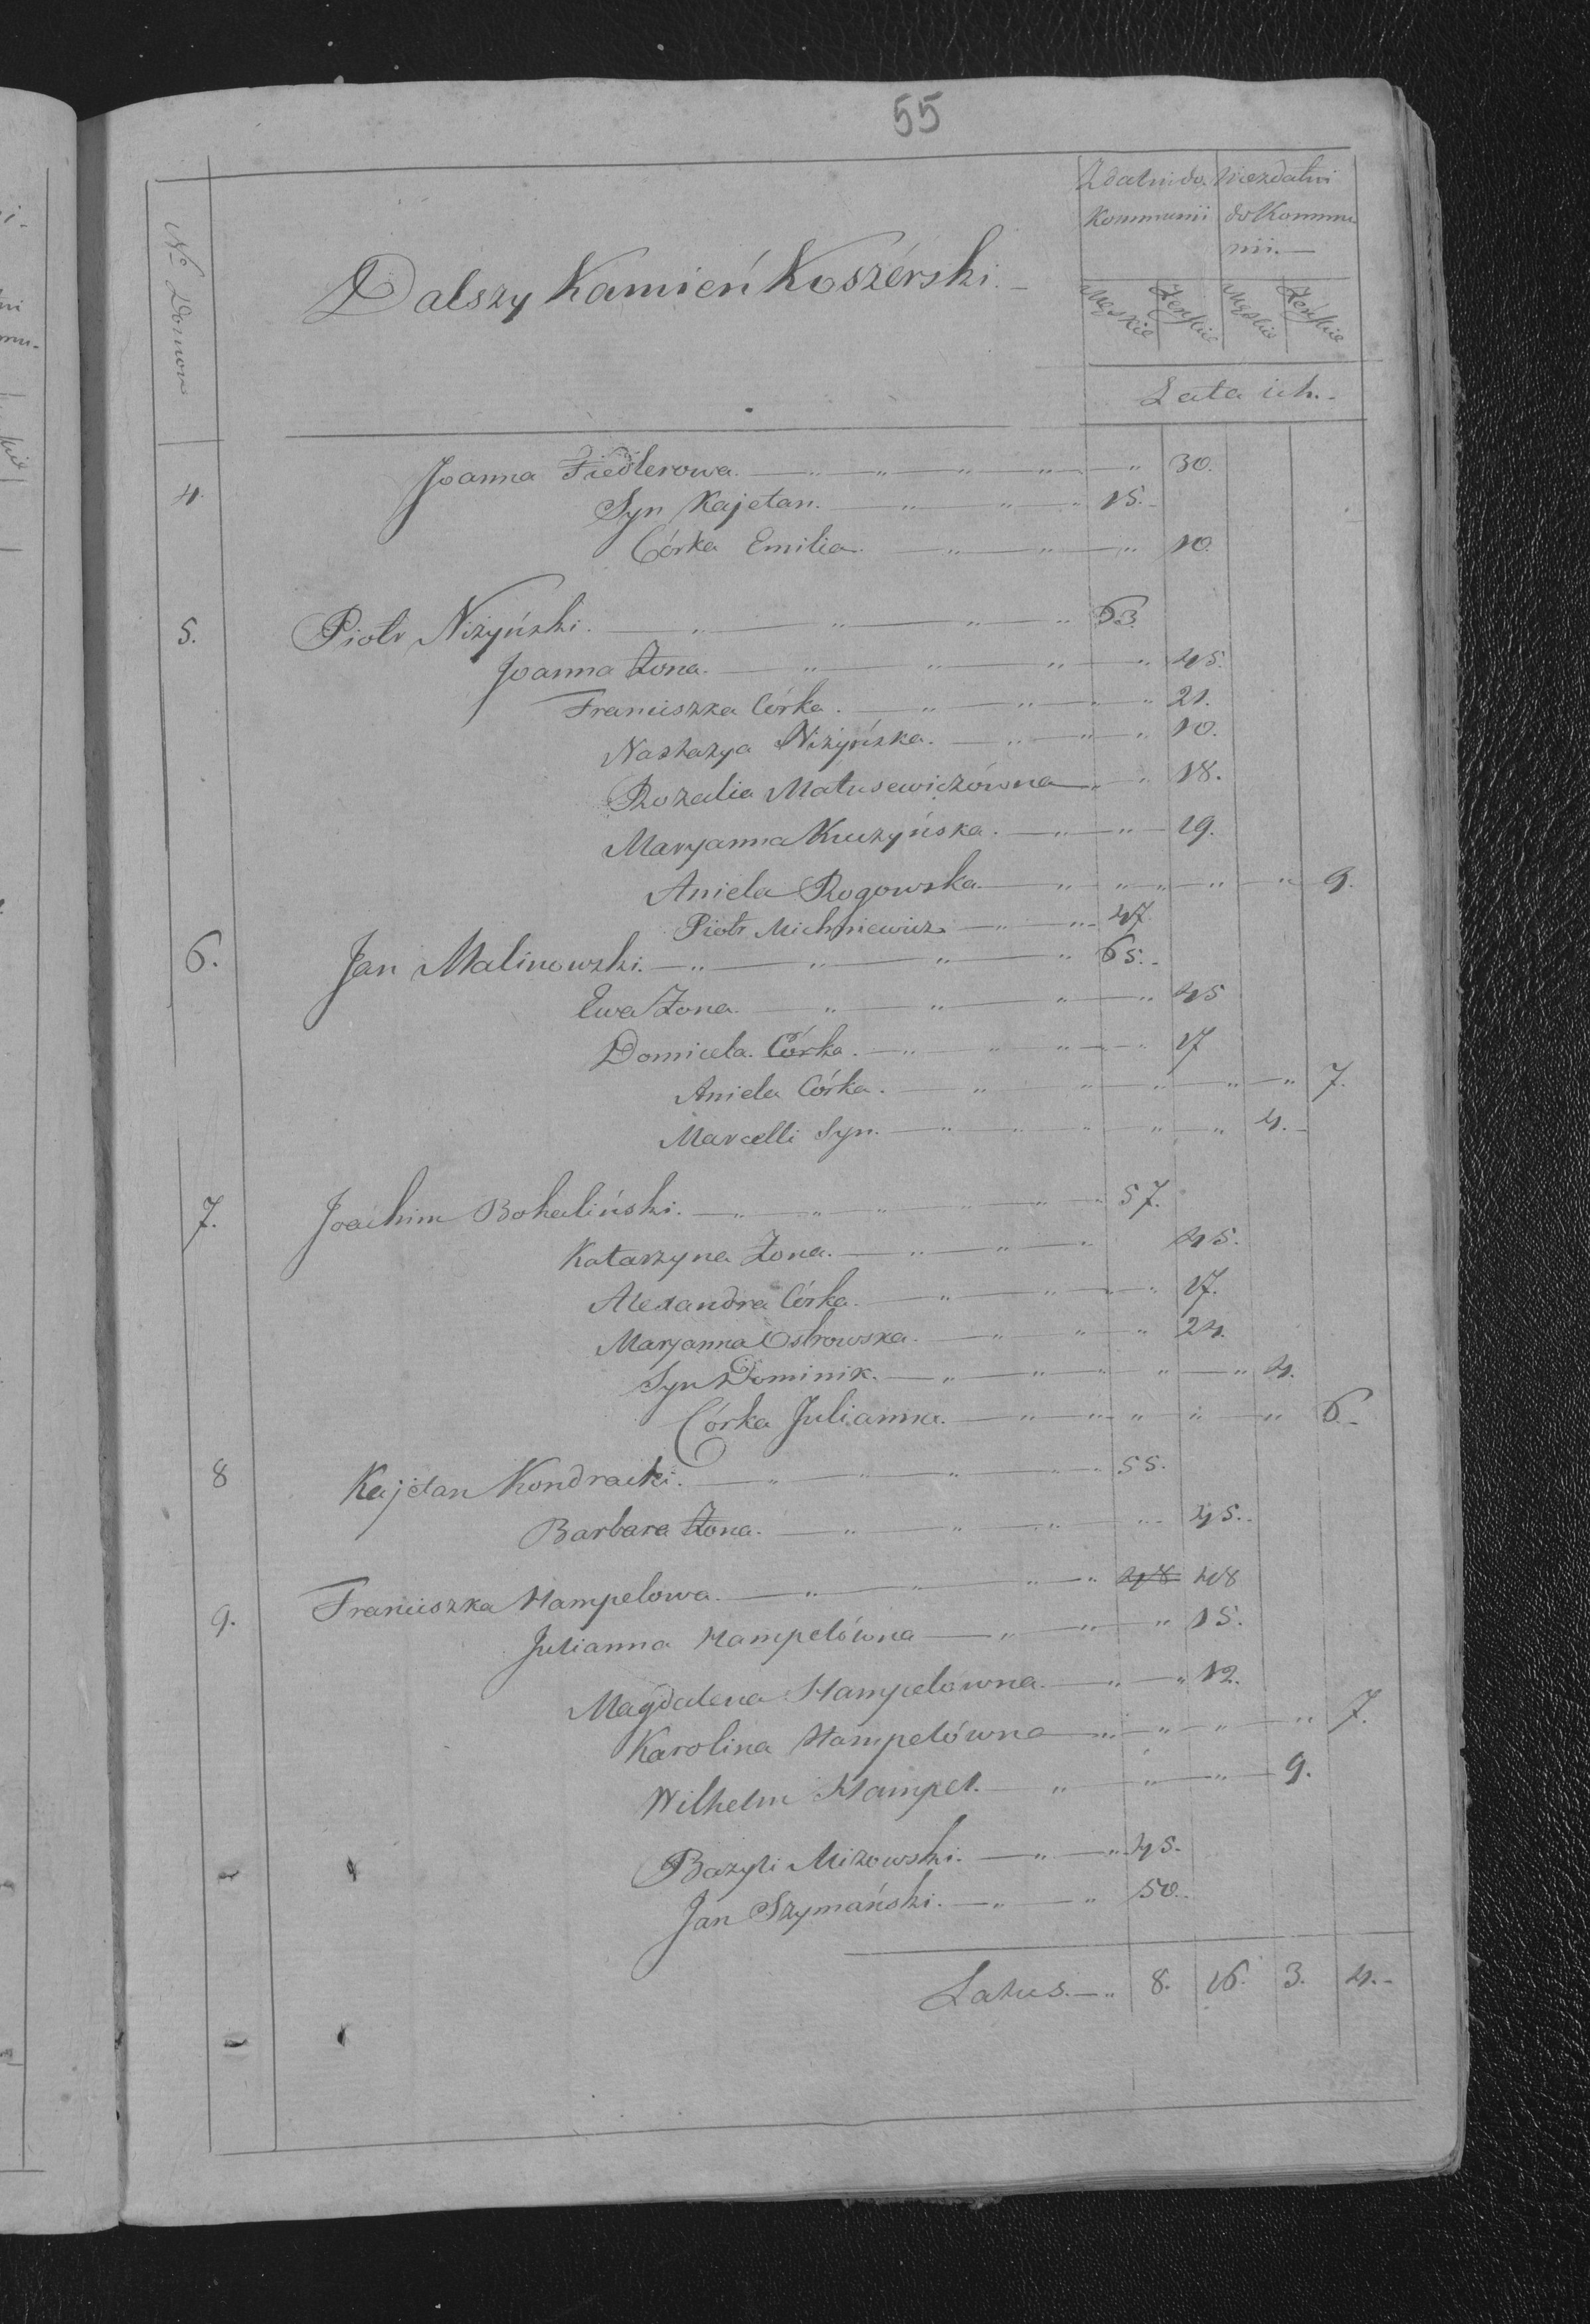 55
Zdatni do Niezdatni
Kommunii do Kommu
nii.
Dalszy Kamień Koszérski.
No Domow
Męzkie Żeńskie Męzkie Żeńskie
Lata ich.
4. Joanna Fiedlerowa. 30.
Syn Kajetan. 15.
Córka Emilia. 10.
5. Piotr Niżyński. 63.
Joanna Żona. 45.
Franciszka Córka. 21.
Nastazya Niżyńska. 10.
Rozalia Matusewiczówna 18.
Maryanna Kuczyńska. 19.
Aniela Rogowska. 9.
Piotr Michniewicz. 47.
6. Jan Malinowski. 65.
Ewa Żona. 45
Domicela Córka. 17
Aniela Córka. 7.
Marcelli Syn. 4.
7. Joachim Bohaliński. 57.
Katarzyna Żona. 45.
Alexandra Córka. 17.
Maryanna Ostrowska. 24.
Syn Dominik. 4.
Córka Julianna. 6.
8 Kajetan Kondracki. 55.
Barbara Żona. 45.
9. Franciszka Hampelowa. 48 48
Julianna Hampelówna 15.
Magdalena Hampelowna. 12.
Karolina Hampelówna 7.
Wilhelm Hampel. 9.
Bazyli Mizowski. 45.
Jan Szymański. 50.
Latus. 8. 16. 3. 4.